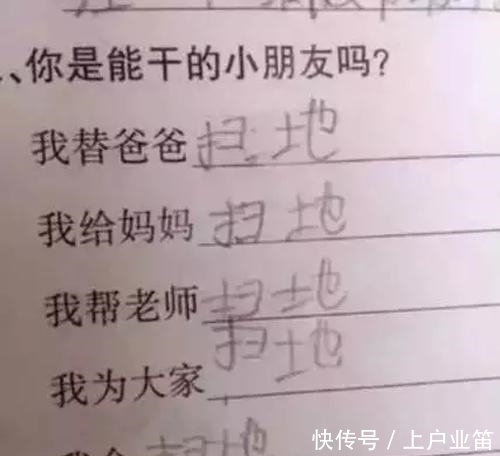 、你是能干的小朋友吗?
我替爸爸扫地
我给妈妈扫地
我帮老师扫地
我为大家扫地
扫地
快传号/上户业笛